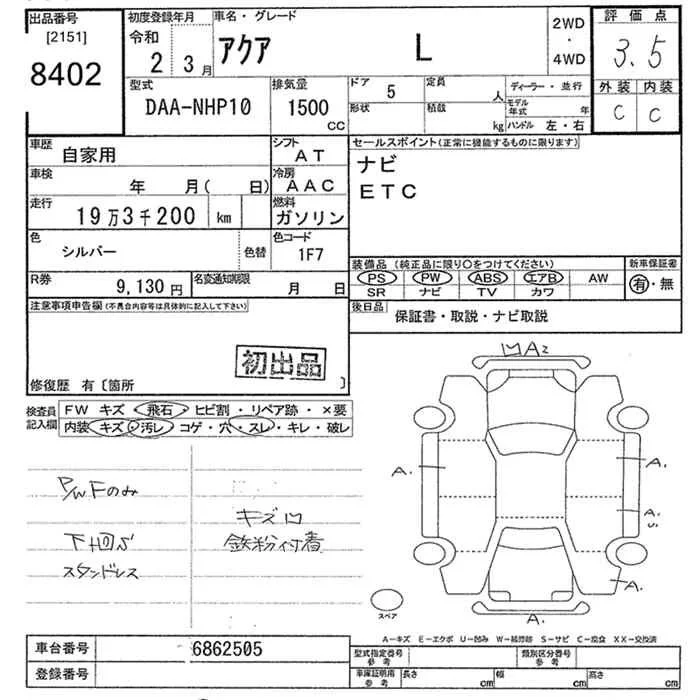 出品番号
[2151]
8402
初度登録年月
令和
2 3月
車名・グレード
アクア L
2WD
・
4WD
評価点
3.5
外装 内装
C C
型式
DAA-NHP10
排気量
1500
CC
ドア 5
定員 人
形状
積載 kg
ディーラー・並行
モデル年式 年
ハンドル 左・右
車歴
自家用
シフト
AT
車検
年 月( 日)
冷房
AAC
走行
19万3千200 km
燃料
ガソリン
色
シルバー
色替
色コード
1F7
R券
9,130円
名変通知期限
月 日
セールスポイント(正常に機能するものに限ります)
ナビ
ETC
装備品(純正品に限り○をつけてください)
PS PW ABS エアB AW
SR ナビ TV カワ
新車保証書
有・無
後日品
保証書・取説・ナビ取説
注意事項申告欄(不具合内容等は具体的に記入して下さい)
初出品
修復歴 有〔箇所 〕
検査員
記入欄
FW キズ・飛石・ヒビ割・リペア跡・×要
内装 キズ・汚レ・コゲ・穴・スレ・キレ・破レ
P/WFのみ
キズ凹
下廻り
鉄粉付着
スタンドレス
凹A2
A.
A.
A.
U.
A.
A.
スペア
A-キズ E-エクボ U-凹み W-補修跡 S-サビ C-腐食 XX-交換済
車台番号
6862505
登録番号
型式指定番号
参考
類別区分番号
参考
車庫証明用
参考
長さ cm
幅 cm
高さ cm